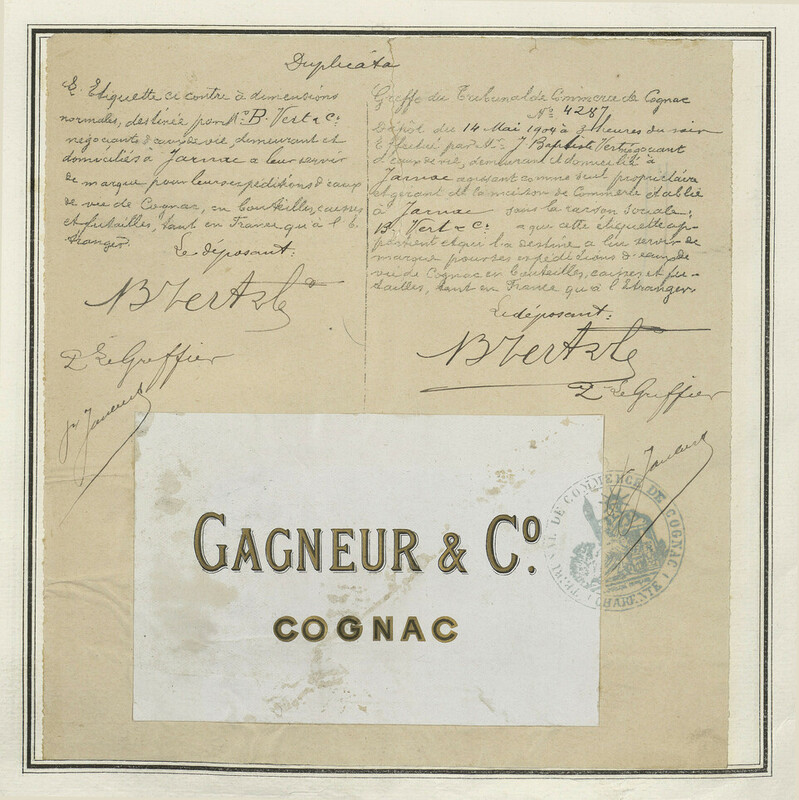 Duplicata
Etiquette ci contre à dimensions
normales, destinée par Mrs B. Vert & Co
négociants d'eaux de vie, demeurant et
domiciliés à Jarnac a leur servir
de marque pour leurs expéditions d'eaux
de vie de Cognac, en bouteilles, caisses
et futailles, tant en France qu'à l'é
tranger.
Le déposant:
B Vert & Co
Le Greffier
Greffe du Tribunal de Commerce de Cognac
No 4287
Dépôt du 14 Mai 1904 à 3 heures du soir
Effectué par Mr J Baptiste Vert négociant
d'eaux de vie, demeurant et domicilié à
Jarnac agissant comme seul propriétaire
et gérant de la maison de Commerce établie
à Jarnac sous la raison sociale:
B Vert & Co a que cette étiquette ap-
partient et qu'il l'a destine a lui servir de
marque pour ses expéditions d'eaux de
vie de Cognac en bouteilles, caisses et fu-
tailles, tant en France qu'à l'Etranger
Le déposant:
B Vert & Co
Le Greffier
GAGNEUR & Co.
COGNAC
TRIBAL DE COMMERCE DE COGNAC
CHARENTE